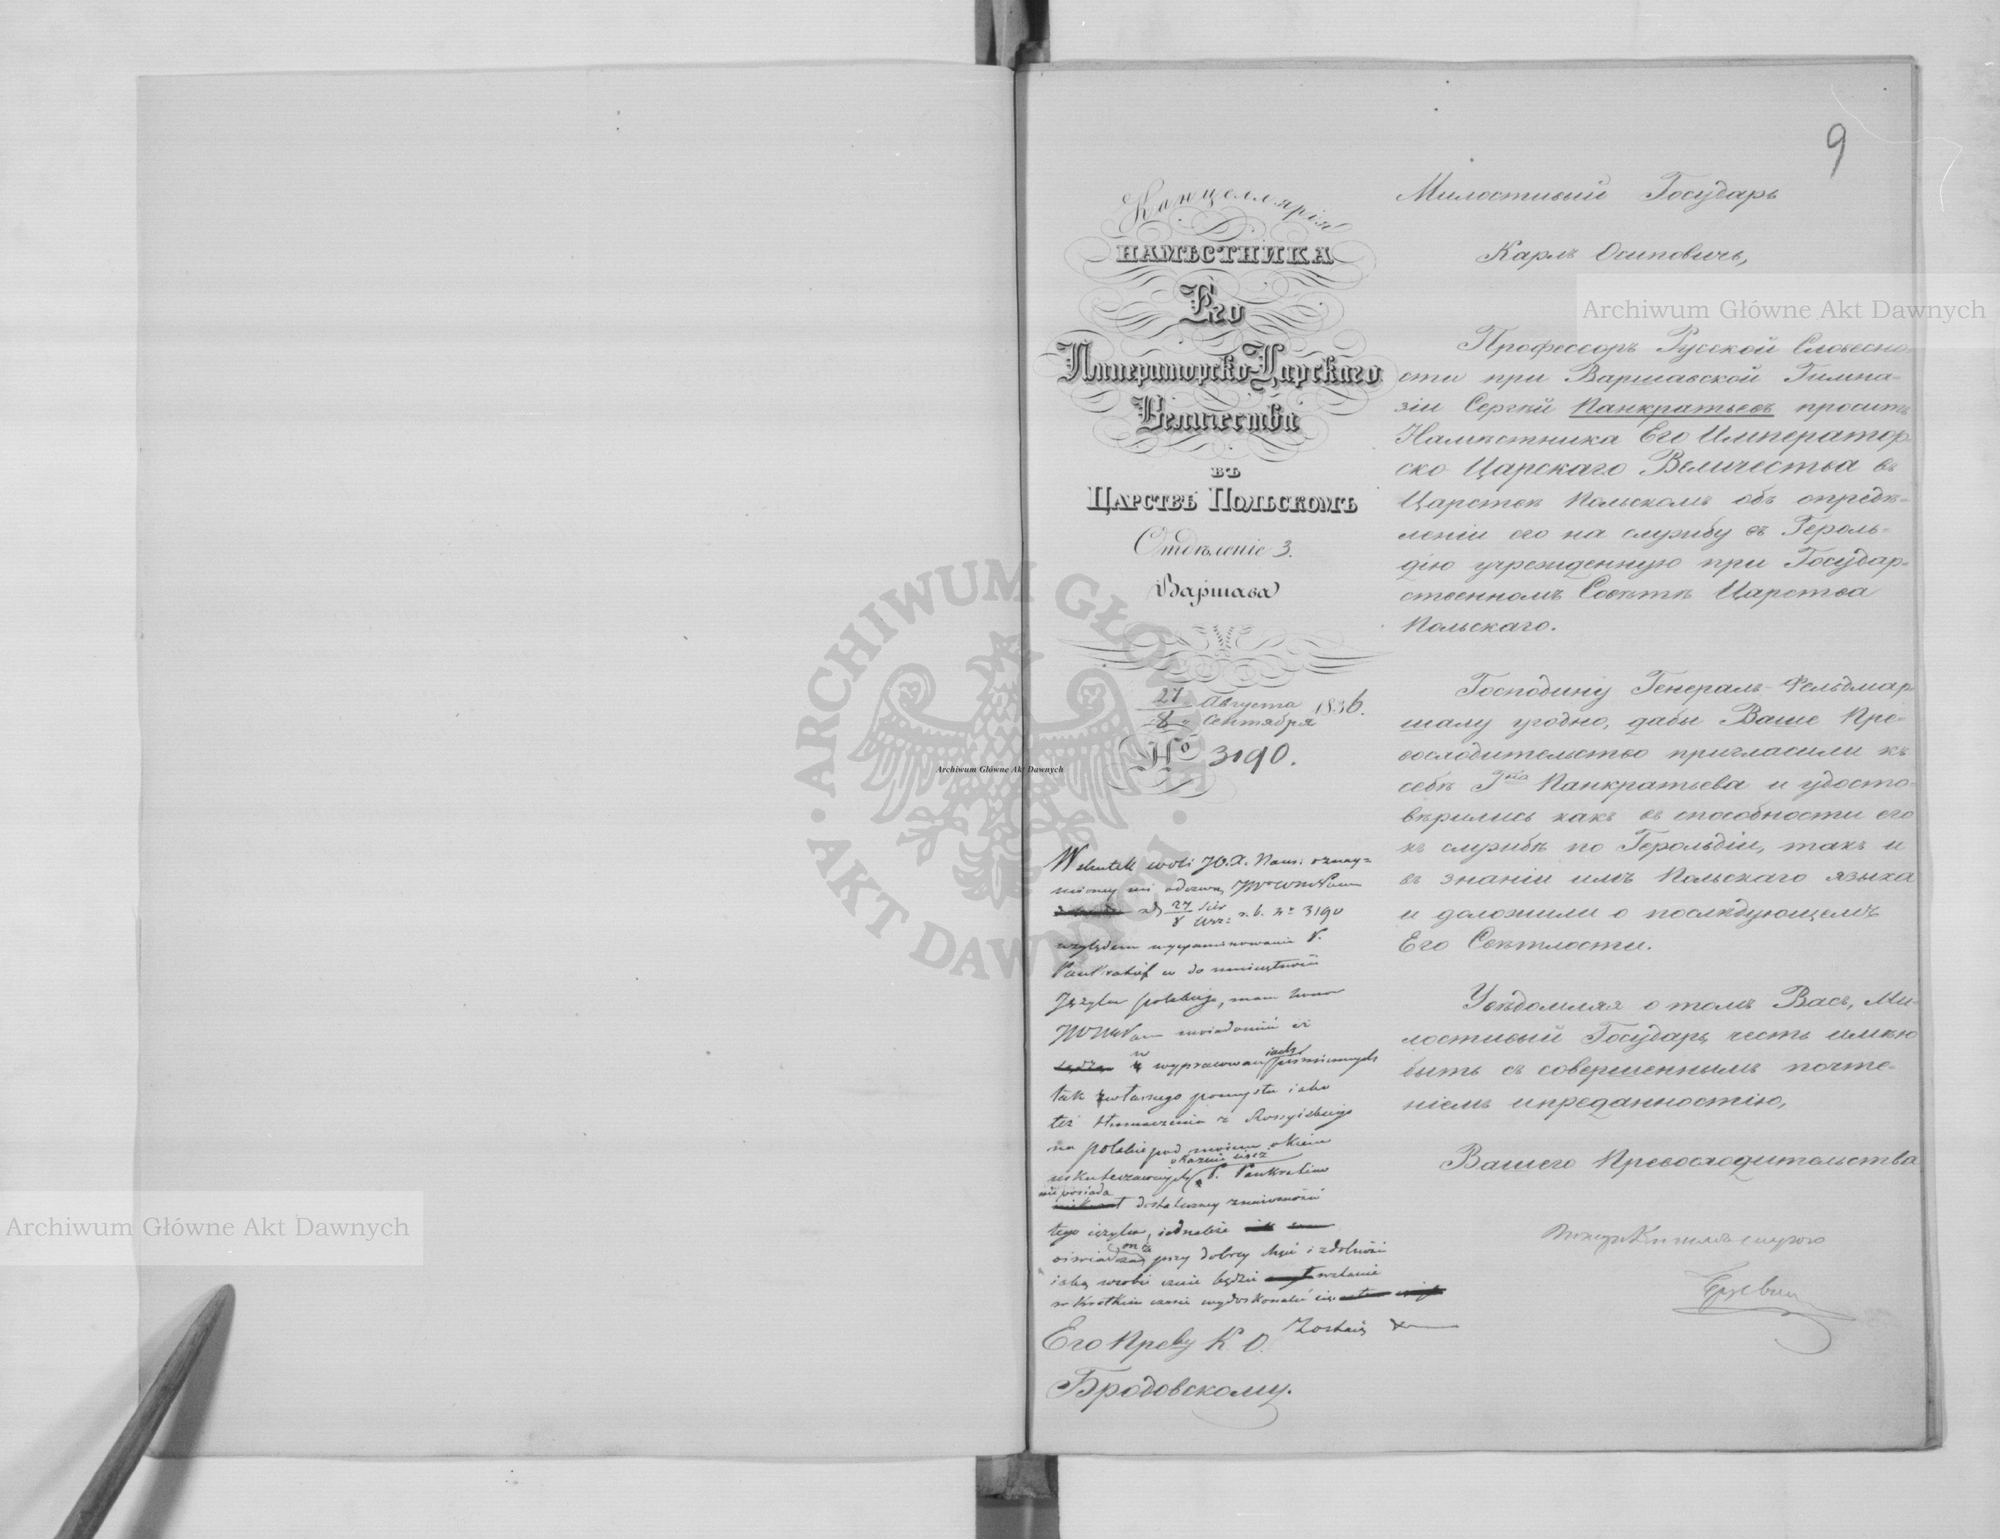 9
Канцеллярія
НАМѢСТНИКА
Его
Императорско-Царскаго
Величества
ВЪ
ЦАРСТВѢ ПОЛЬСКОМЪ
Отдѣленіе 3.
Варшава
27 Августа
8 Сентября 1836.
№ 3190.
Милостивый Государь
Карлъ Осиповичъ,
Профессоръ Русской Словесно-
сти при Варшавской Гимна-
зіи Сергѣй Панкратьевъ проситъ
Намѣстника Его Император
ско Царскаго Величества въ
Царствѣ Польскомъ объ опредѣ-
леніи его на службу въ Героль-
дію учрежденную при Государ-
ственномъ Совѣтѣ Царства
Польскаго.
Господину Генералъ-Фельдмар-
шалу угодно, дабы Ваше Пре-
восходительство пригласили къ
себѣ Гна Панкратьева и удосто-
вѣрились какъ въ способности его
къ службѣ по Герольдіи, такъ и
въ знаніи имъ Польскаго языка
и доложили о послѣдующемъ
Его Свѣтлости.
Увѣдомляя о томъ Васъ, Ми-
лостивый Государь, честь имѣю
быть съ совершеннымъ почте-
ніемъ и преданностію,
Вашего Превосходительства
W skutek woli JO. X. Nam: oznay-
mioney mi odezwą
27 Sier
8 Wrz: r. b. Nr 3190
względem P.
w do umiejętności
Języka polskiego, mam honor
uwiadomić iż
w wypracowaniach piśmiennych
tak własnego pomysłu iako
też tłumaczenia z Rossyiskiego
na polskie pod moim okiem
uskutecznionych okazuie się iż P. Pankratiew
nie posiada dostateczney znaiomości
tego ięzyka, iednakże
przy dobrey chęci i zdolności
iaką będzie w stanie
w krótkim czasie wydoskonalić się
Zostaię
Его Превву К. О.
Бродовскому.
Archiwum Główne Akt Dawnych
Archiwum Główne Akt Dawnych
Archiwum Główne Akt Dawnych
ARCHIWUM GŁÓWNE AKT DAWNYCH